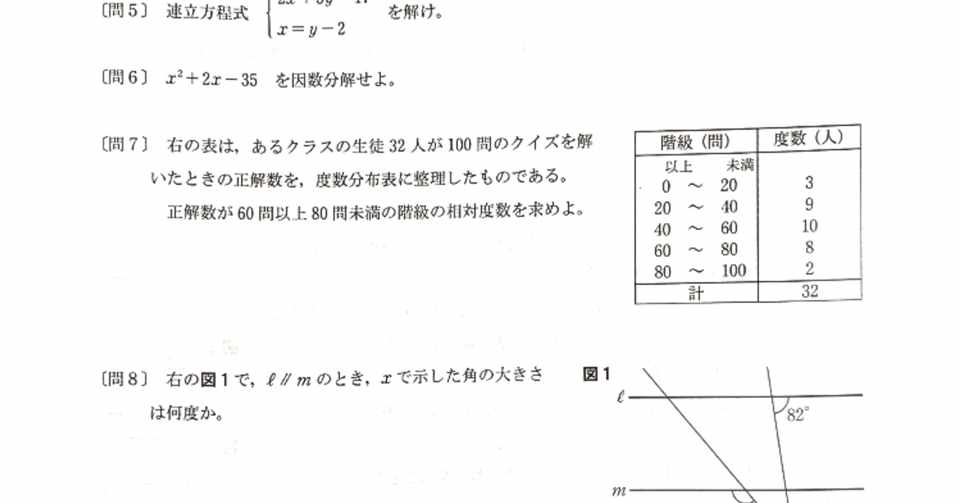 〔問5〕 連立方程式 を解け。
x=y-2
〔問6〕 x²+2x-35 を因数分解せよ。
〔問7〕 右の表は,あるクラスの生徒32人が100問のクイズを解
いたときの正解数を,度数分布表に整理したものである。
正解数が60問以上80問未満の階級の相対度数を求めよ。
階級(問) 度数(人)
以上 未満
0 ~ 20 3
20 ~ 40 9
40 ~ 60 10
60 ~ 80 8
80 ~ 100 2
計 32
〔問8〕 右の図1で,ℓ∥mのとき,xで示した角の大きさ
は何度か。
図1
ℓ
82°
m